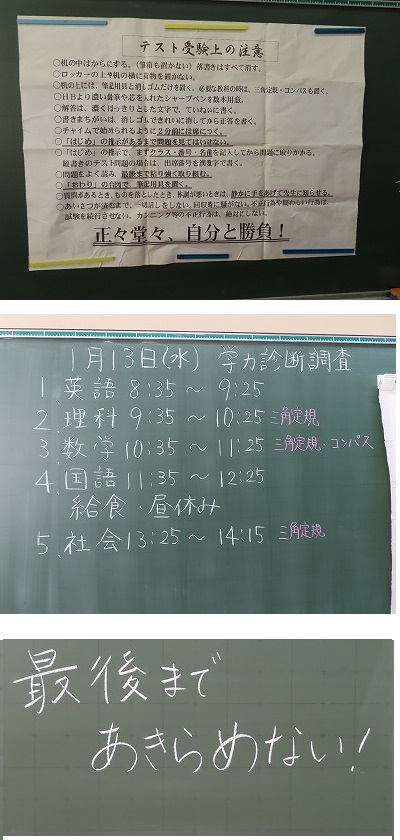 テスト受験上の注意
○机の中はからにする。（筆箱も置かない）落書きはすべて消す。
○ロッカーの上や机の横に荷物を置かない。
○机の上には、筆記用具と消しゴムだけを置く。必要な教科の時は、三角定規・コンパスも置く。
○ＨＢより濃い鉛筆や芯を入れたシャープペンを数本用意。
○解答は、濃くはっきりとした文字で、ていねいに書く。
○書きまちがいは、消しゴムできれいに消してから正答を書く。
○チャイムで始められるように２分前には席につく。
○「はじめ」の指示があるまで問題を見てはいけない。
○「はじめ」の指示で、まずクラス・番号・名前を記入してから問題に取りかかる。
縦書きのテスト問題の場合は、出席番号を漢数字で書く。
○問題をよく読み、最後まで粘り強く取り組む。
○「おわり」の合図で、筆記用具を置く。
○質問があるとき、ものを落としたとき、体調が悪いときは、静かに手をあげて先生に知らせる。
○あいさつが済むまで、一切話しをしない。回収時に騒がない。不正行為や疑わしい行為は
試験を続行させない。カンニング等の不正行為は、絶対にしない。
正々堂々、自分と勝負！
1月13日(水) 学力診断調査
1、英語 8:35 ～ 9:25
2、理科 9:35 ～ 10:25 三角定規
3、数学 10:35 ～ 11:25 三角定規・コンパス
4、国語 11:35 ～ 12:25
給食、昼休み
5、社会 13:25 ～ 14:15 三角定規
最後まで
あきらめない！